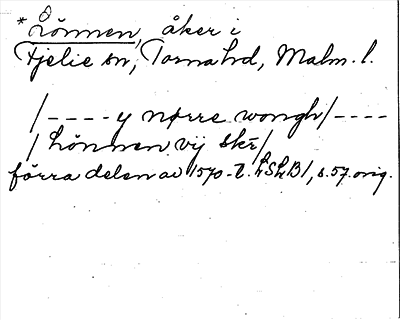 * Lönnen, åker i
Fjelie sn, Torna hd, Malm. l.
/---- y nørre wongh/----
/ Lönnen vij skr̄/
förra delen av 1570-t. LSLB1, s.57. orig.